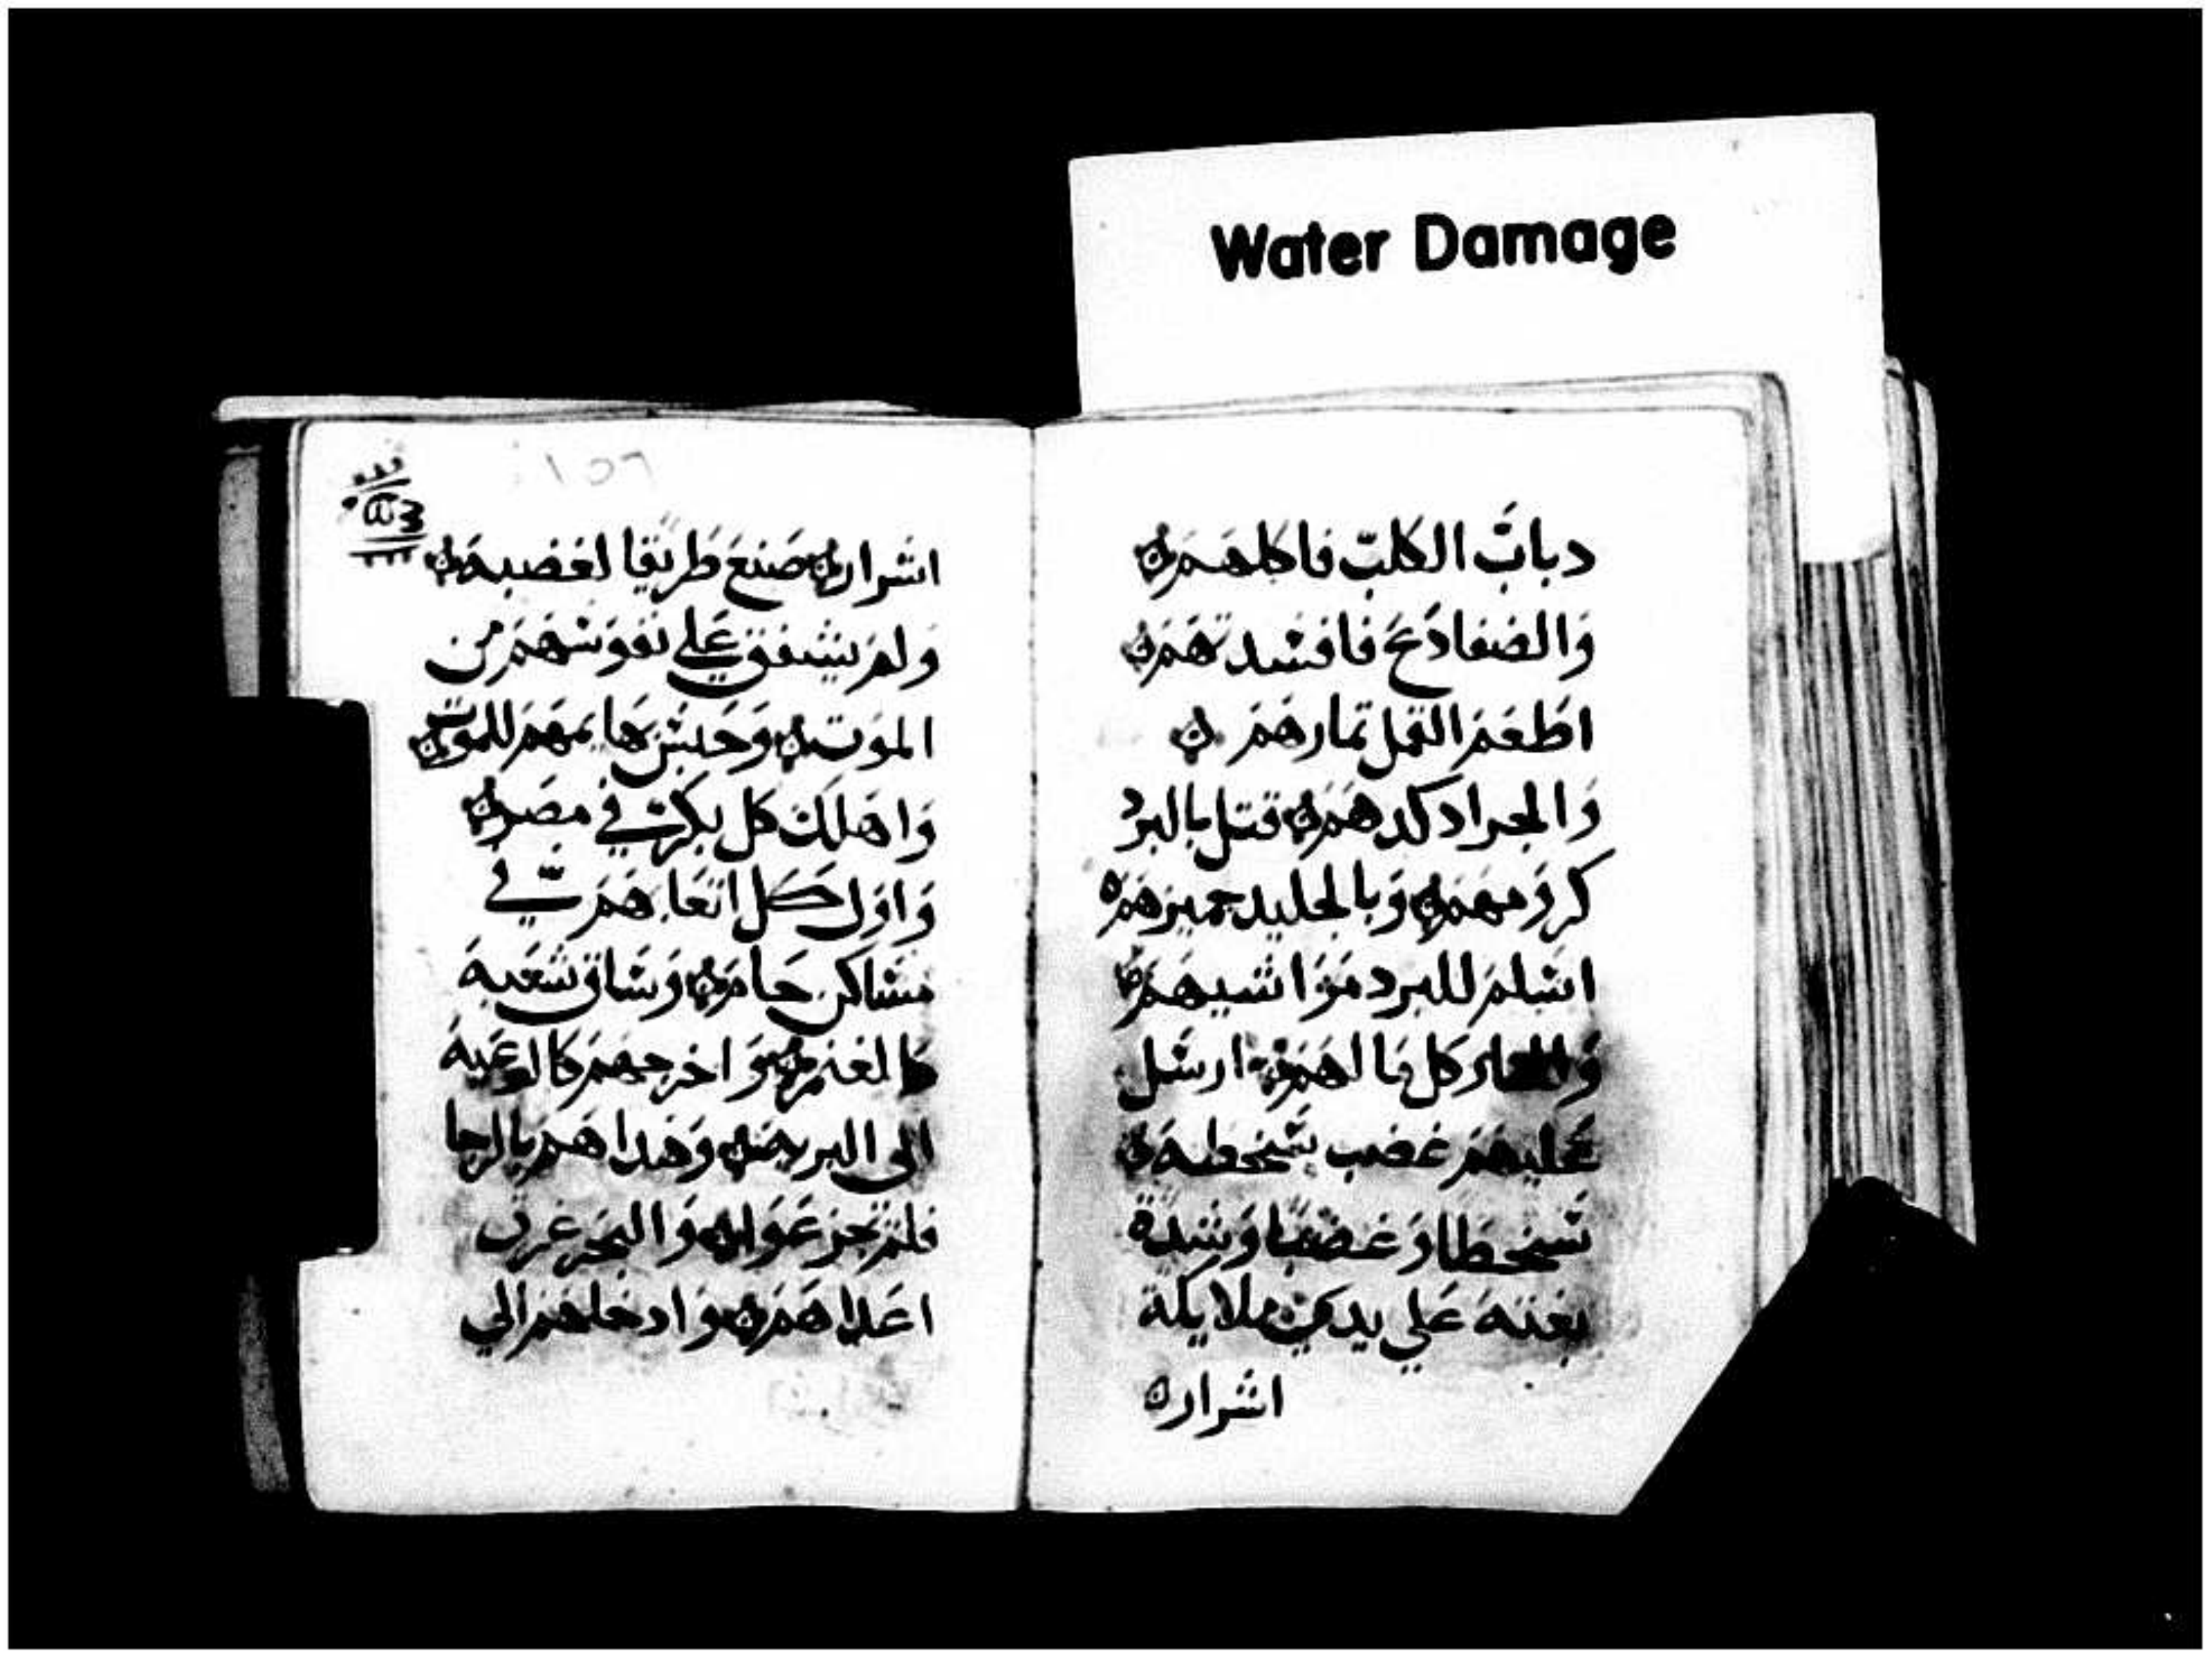 Water Damage
دباب الكلب فاكلهم
والضفادع فافسدتهم
اطعم القمل ثمارهم
والجراد كدهم قتل بالبرد
كرومهم وبالجليد جميزهم
اسلم للبرد مواشيهم
كل مالهم ارسل
عليهم غضب سخطه
سخطا وغضبا وشدة
بعثه علي يدي ملايكة
اشرار
١٥٦
اشرار صنع طريقا لغضبه
ولم يشفق علي نفوسهم من
الموت وحبس بهايمهم للموت
واهلك كل بكر في مصر
واول كل اتعابهم في
مساكن حام وساق شعبه
كالغنم واخرجهم كالرعية
الى البرية وهداهم بالرجا
فلم يجزعوا والبحر غرق
اعداهم وادخلهم الي